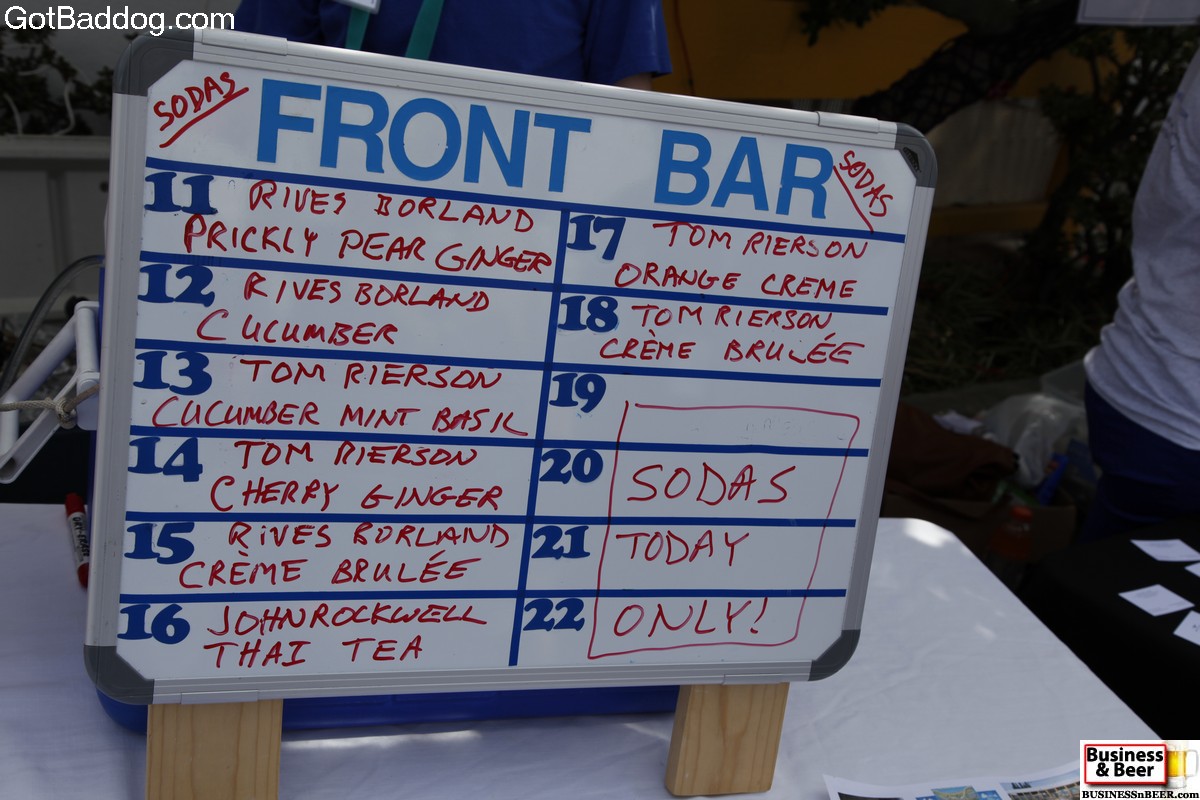 GotBaddog.com
SODAS
FRONT BAR
SODAS
11 RIVES BORLAND
PRICKLY PEAR GINGER
12 RIVES BORLAND
CUCUMBER
13 TOM RIERSON
CUCUMBER MINT BASIL
14 TOM RIERSON
CHERRY GINGER
15 RIVES BORLAND
CRÈME BRULÉE
16 JOHN ROCKWELL
THAI TEA
17 TOM RIERSON
ORANGE CREME
18 TOM RIERSON
CRÈME BRULÉE
19
20 SODAS
21 TODAY
22 ONLY!
Business
& Beer
BUSINESSnBEER.com